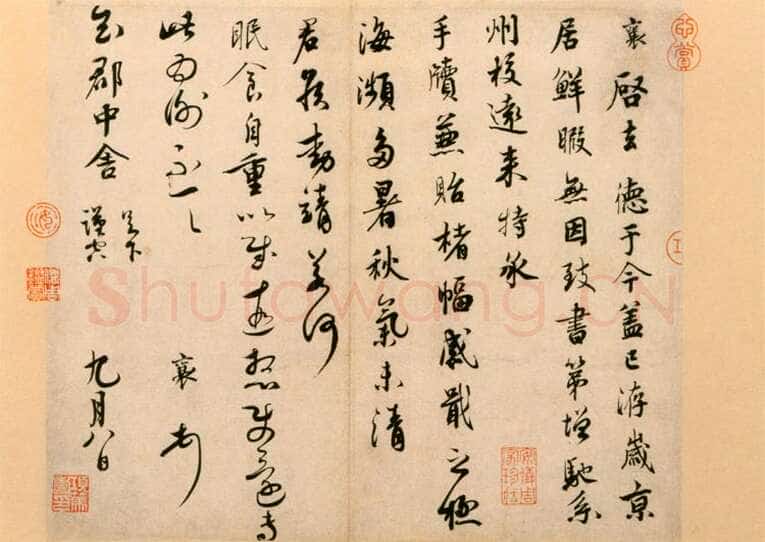 襄啓去德于今蓋已洊歲京
居鮮暇無因致書第增馳系
州校遠来特承
手牘兼貽楮幅感戢之極
海瀕多暑秋氣未清
君侯動靜若何
眠食自重以慰遠想使還專
此為謝不一一 襄頓首
知郡中舍 足下
謹空 九月八日
Shufawang.CN